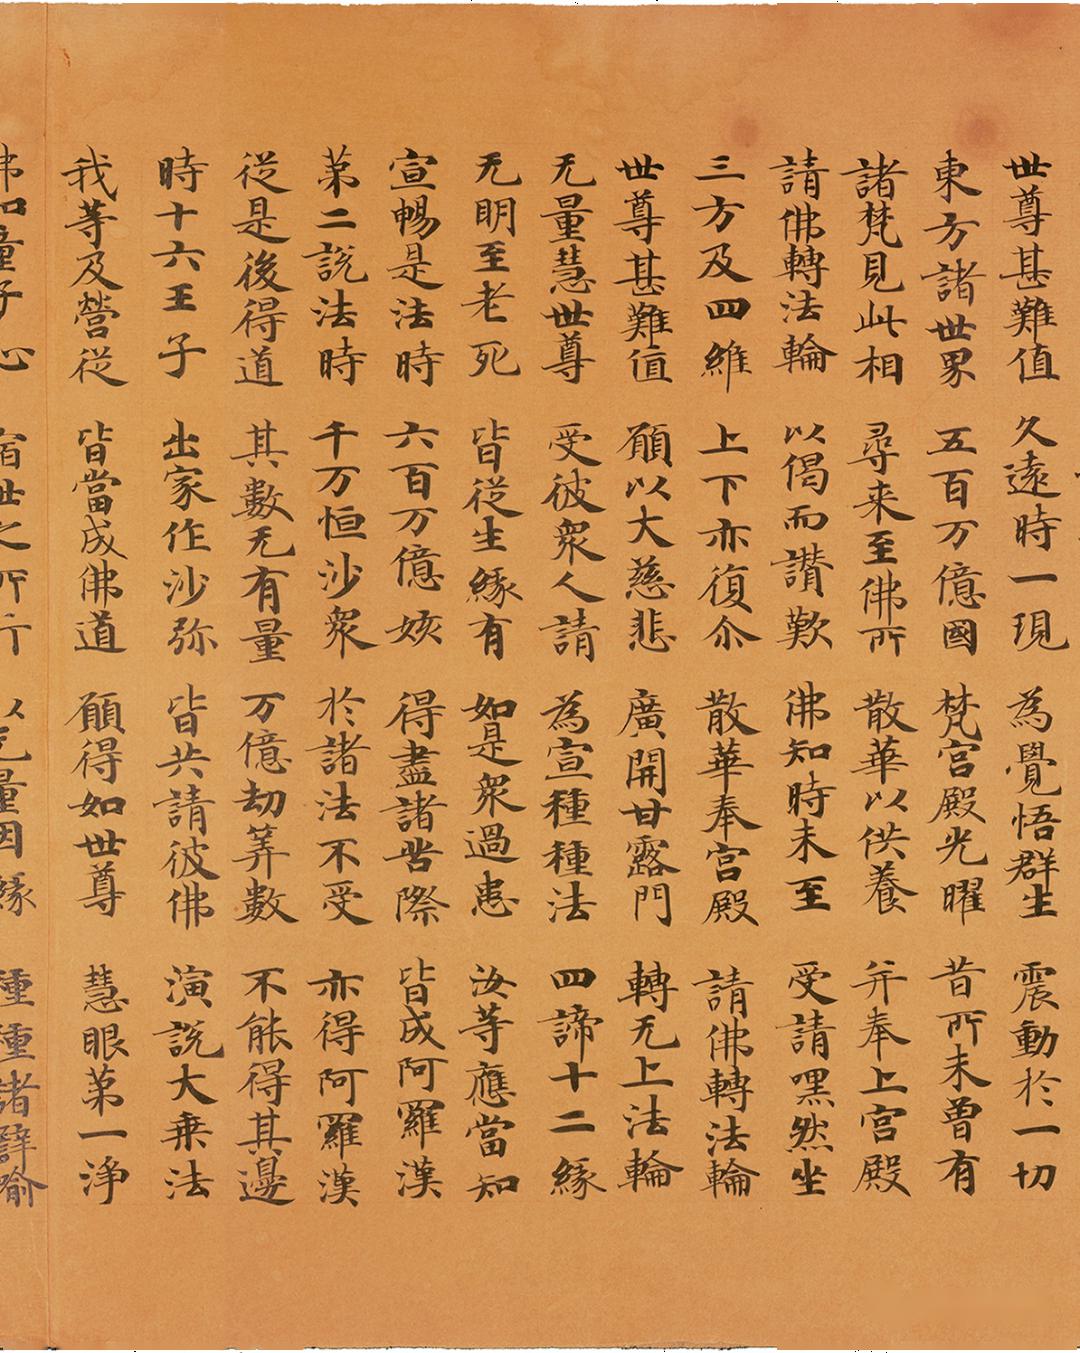 世尊甚難值 久遠時一現 為覺悟群生 震動於一切
東方諸世界 五百万億國 梵宮殿光曜 昔所未曾有
諸梵見此相 尋来至佛所 散華以供養 并奉上宮殿
請佛轉法輪 以偈而讚歎 佛知時未至 受請嘿然坐
三方及四維 上下亦復尒 散華奉宮殿 請佛轉法輪
世尊甚難值 願以大慈悲 廣開甘露門 轉无上法輪
无量慧世尊 受彼衆人請 為宣種種法 四諦十二緣
无明至老死 皆從生緣有 如是衆過患 汝等應當知
宣暢是法時 六百万億姟 得盡諸苦際 皆成阿羅漢
第二說法時 千万恒沙衆 於諸法不受 亦得阿羅漢
從是後得道 其數无有量 万億劫筭數 不能得其邊
時十六王子 出家作沙弥 皆共請彼佛 演說大乗法
我等及營從 皆當成佛道 願得如世尊 慧眼第一淨
佛知童子心 宿世之所行 以无量因緣 種種諸譬喻